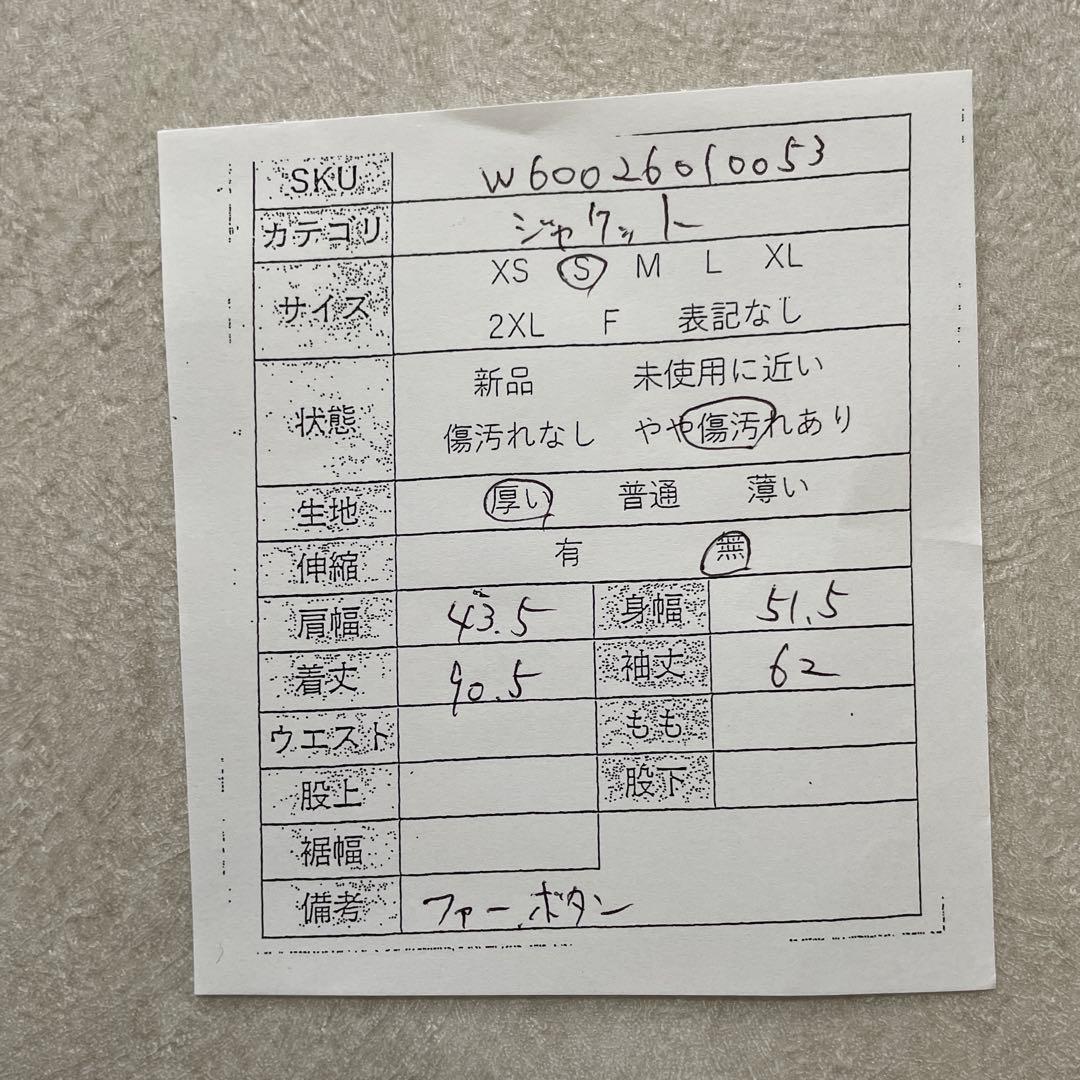 SKU W60026010053
カテゴリ ジャケット
サイズ XS S M L XL
2XL F 表記なし
状態 新品 未使用に近い
傷汚れなし やや傷汚れあり
生地 厚い 普通 薄い
伸縮 有 無
肩幅 43.5 身幅 51.5
着丈 90.5 袖丈 62
ウエスト もも
股上 股下
裾幅
備考 ファー ボタン